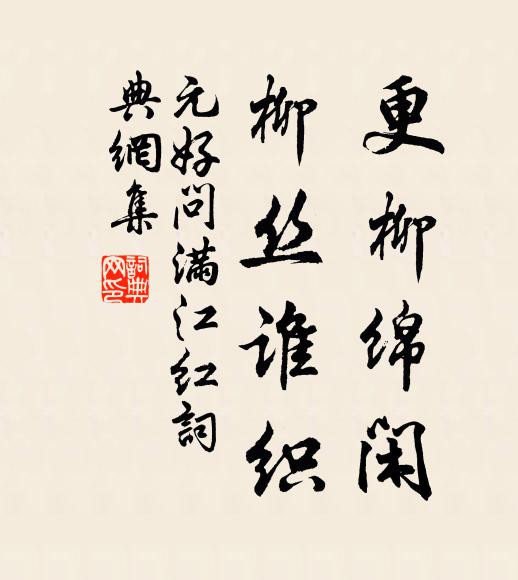 更柳绵闲
柳丝谁织
元好问满江红詞
典網集
詞典网印